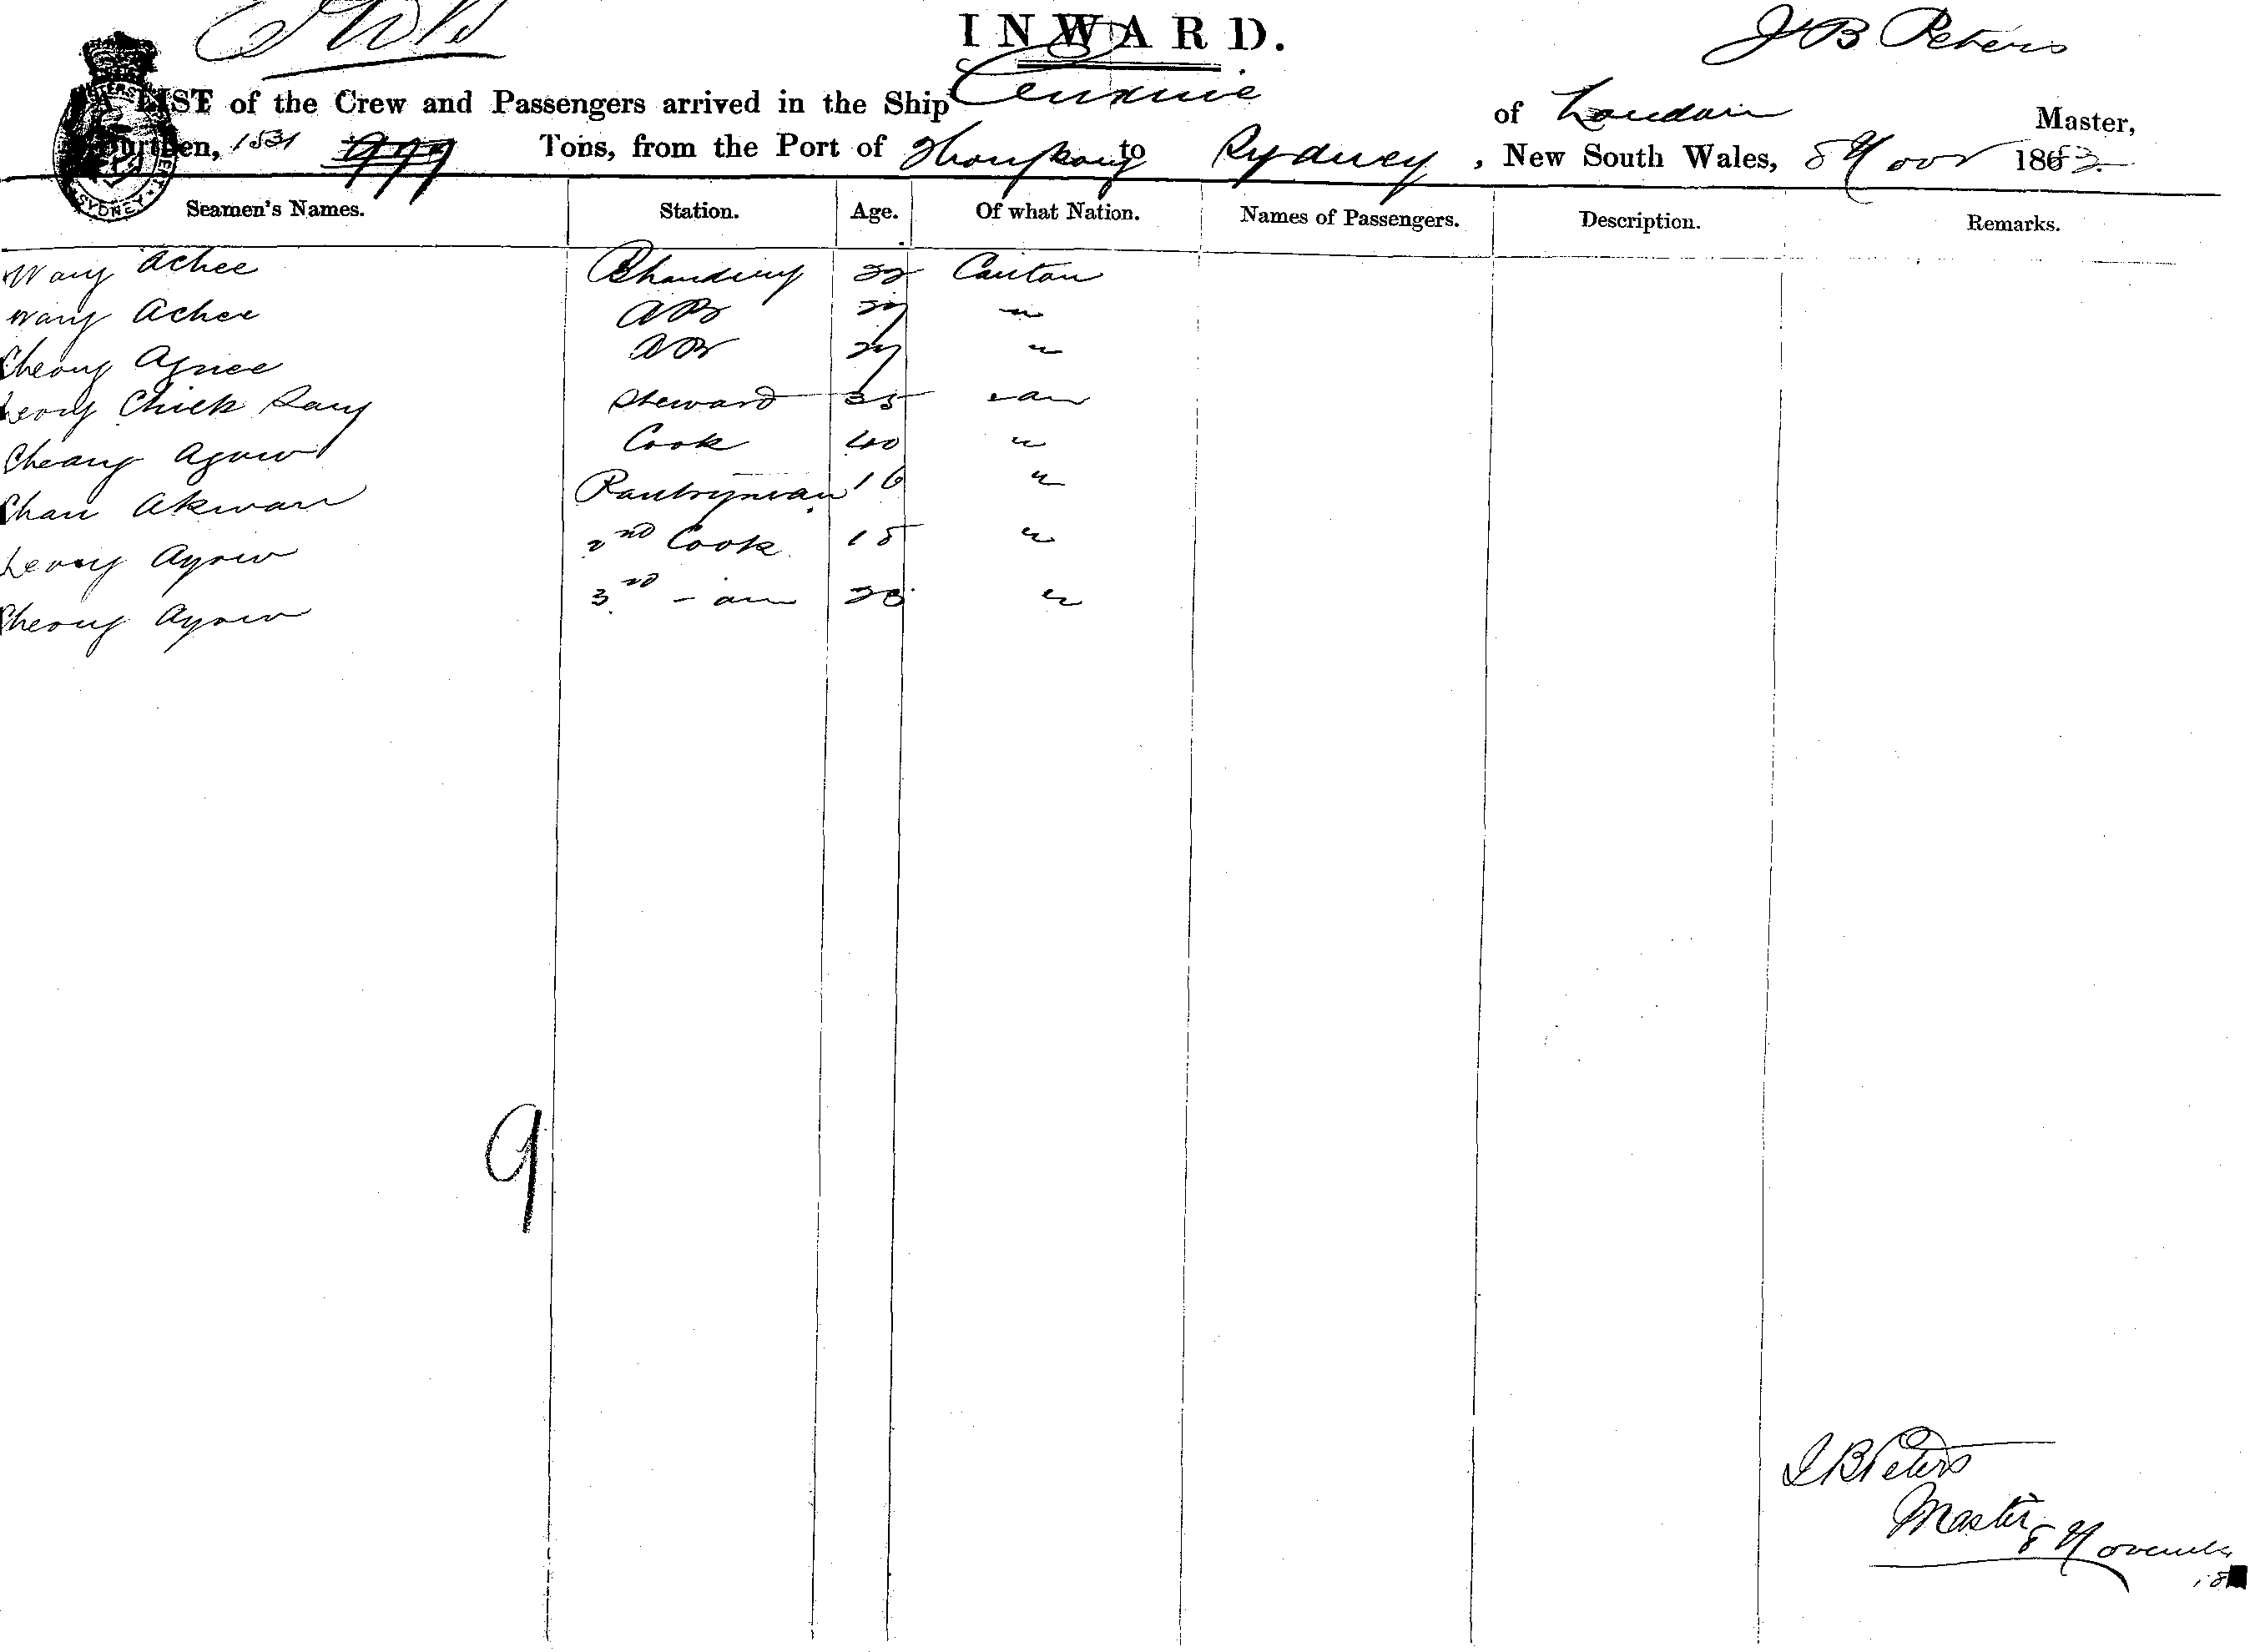 INWARD.
J B Peters
A LIST of the Crew and Passengers arrived in the Ship of London Master,
Burthen, 1531 999 Tons, from the Port of Hongkong to Sydney, New South Wales, 8 Novr 1883
Seamen's Names. Station. Age. Of what Nation. Names of Passengers. Description. Remarks.
Wang Achee 32 Canton
Wang Achee AB 27 "
Cheong AB 27 "
Leong Chick Steward 35 "
Cheang Cook 40 "
Chan Akwan Pantryman 16 "
Leong Ayow 2nd Cook 18 "
Cheong Ayow 3rd 28 "
9
J B Peters
Master
8 November